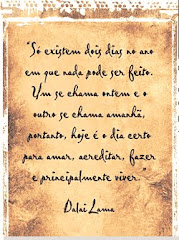 "Só existem dois dias no ano
em que nada pode ser feito.
Um se chama ontem e o
outro se chama amanhã,
portanto, hoje é o dia certo
para amar, acreditar, fazer
e principalmente viver."
Dalai Lama